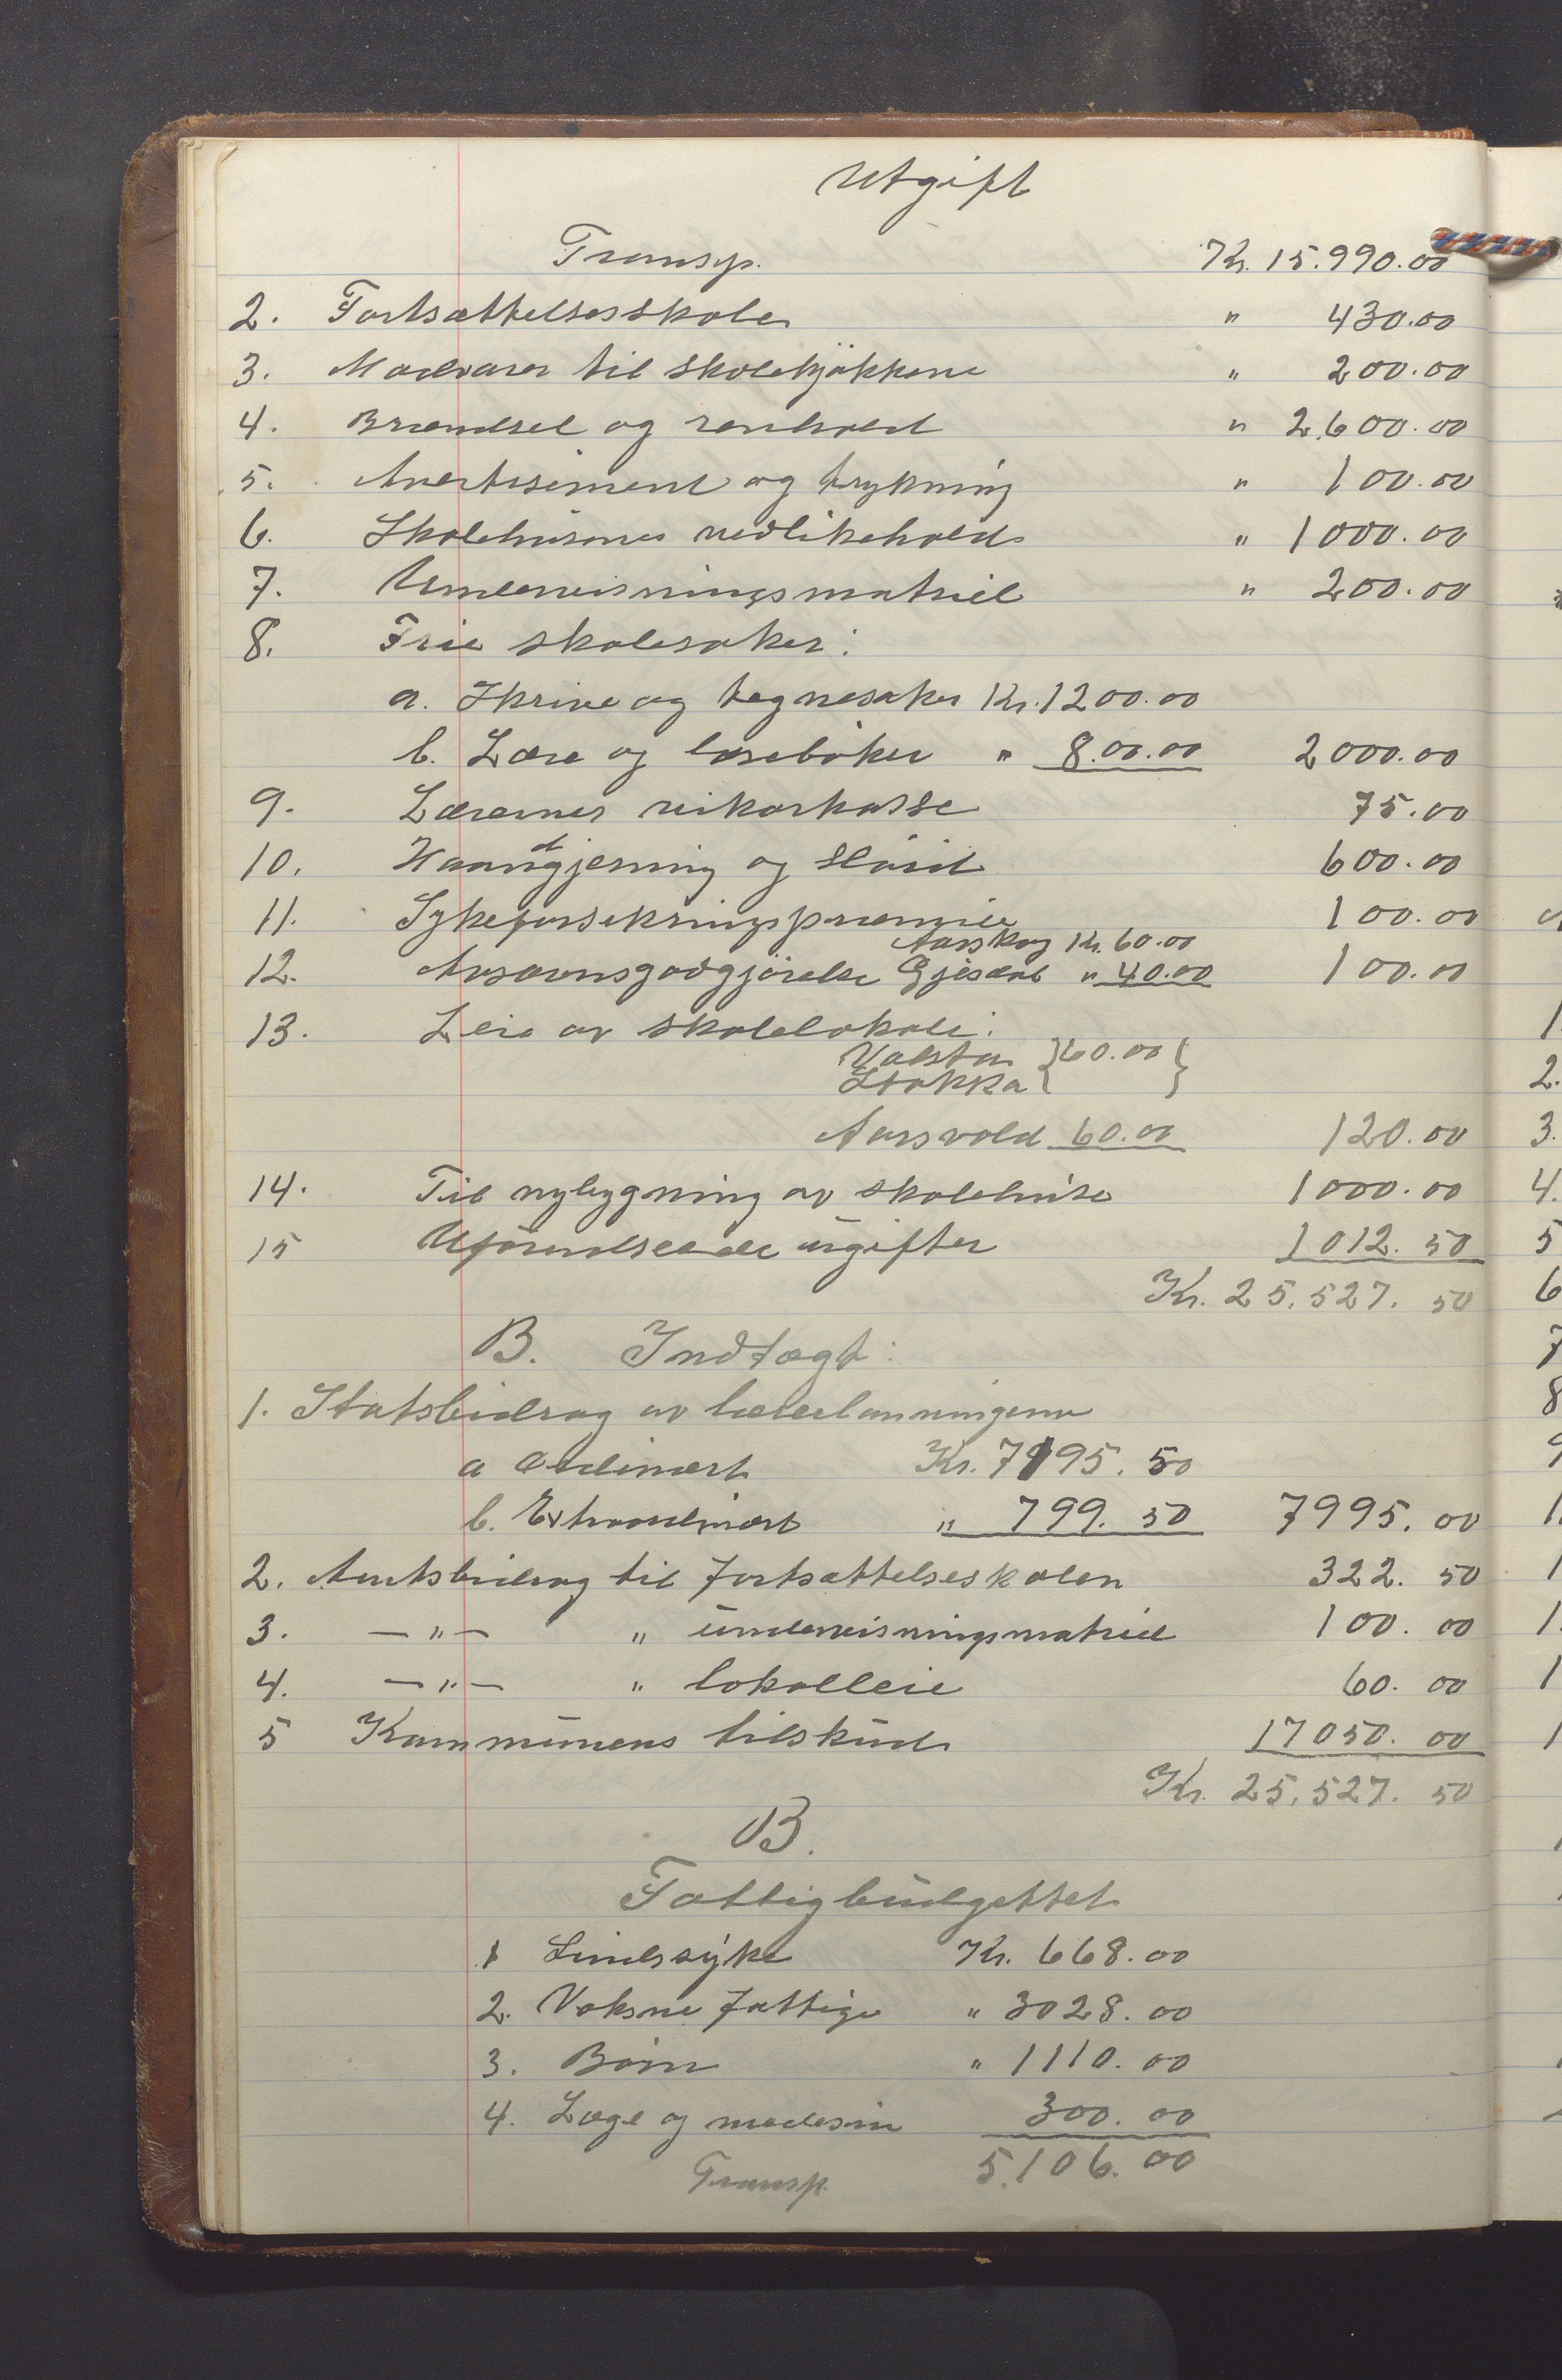 Utgift
Transp. Kr. 15.990.00
2. Fortsættelsesskole " 430.00
3. Madvarer til skolekjøkkene " 200.00
4. Brændsel og renhold " 2.600.00
5. Avertisiment og trykning " 100.00
6. Skolehusenes vedlikehold " 1000.00
7. Undervisningsmatriel " 200.00
8. Frie skolesaker:
a. Skrive og tegnesaker Kr. 1200.00
b. Lære og lesebøker " 8.00.00 2000.00
9. Lærernes vikarkasse 75.00
10. Haandgjerning og sløid 600.00
11. Sykeforsikringspræmie 100.00
Aarskog Kr. 60.00
12. Avsavnsgodgjørelse Gjesdal " 40.00 100.00
13. Leie av skolelokale:
Valstan } 60.00 }
Stokka
Aarsvold 60.00 120.00
14. Til nybygning av skolehuse 1000.00
15 Uforudseede utgifter 1012.50
Kr. 25.527.50
B. Indtægt:
1. Statsbidrag av lærerlønningerne
a Ordinært Kr. 7195.50
b. Extraordinært " 799.50 7995.00
2. Amtsbidrag til fortsættelseskolen 322.50
3. —"— " undervisningsmatriel 100.00
4. —"— " lokalleie 60.00
5 Kommunens tilskud 17050.00
Kr. 25.527.50
B.
Fattigbudgettet
1 Sindssyke Kr. 668.00
2. Voksne fattige " 3028.00
3. Børn " 1110.00
4. Læge og medesin 300.00
Transp. 5.106.00
1.
2.
3.
4.
5
6
7
8
9